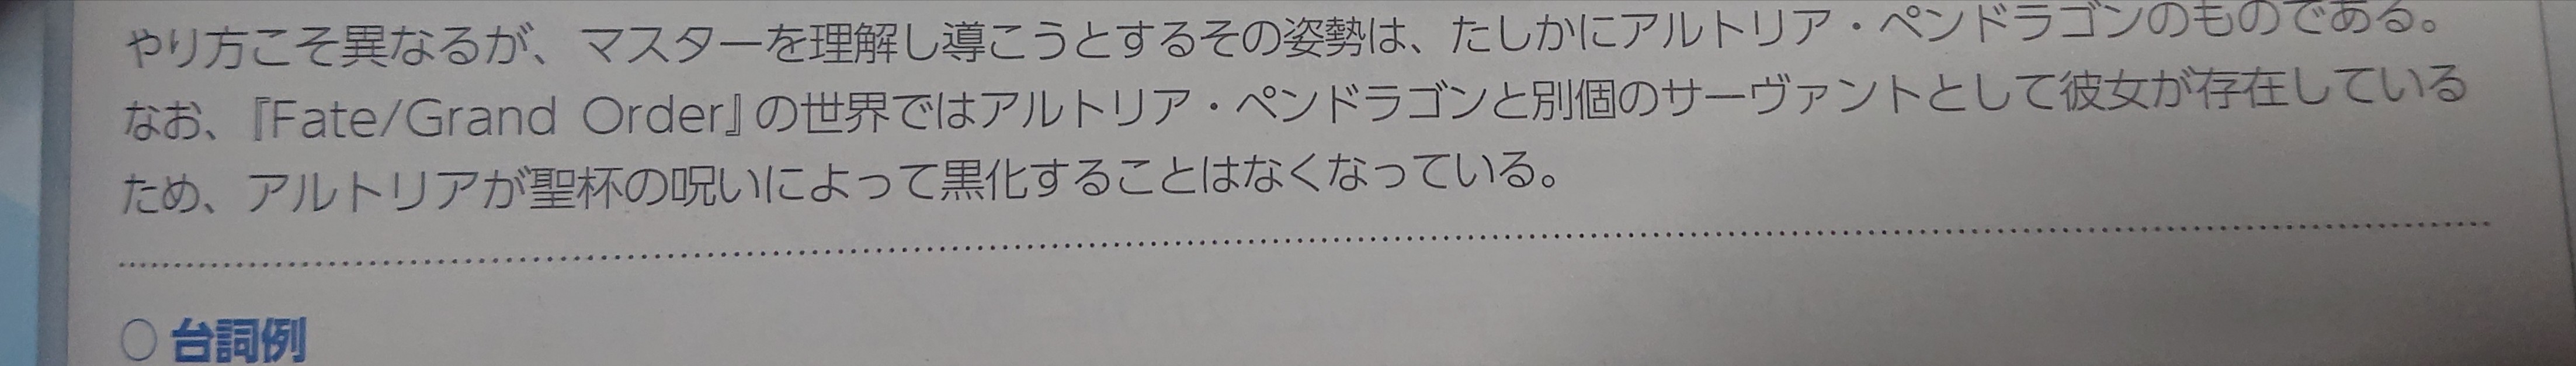 やり方こそ異なるが、マスターを理解し導こうとするその姿勢は、たしかにアルトリア・ペンドラゴンのものである。
なお、『Fate/Grand Order』の世界ではアルトリア・ペンドラゴンと別個のサーヴァントとして彼女が存在している
ため、アルトリアが聖杯の呪いによって黒化することはなくなっている。
○ 台詞例